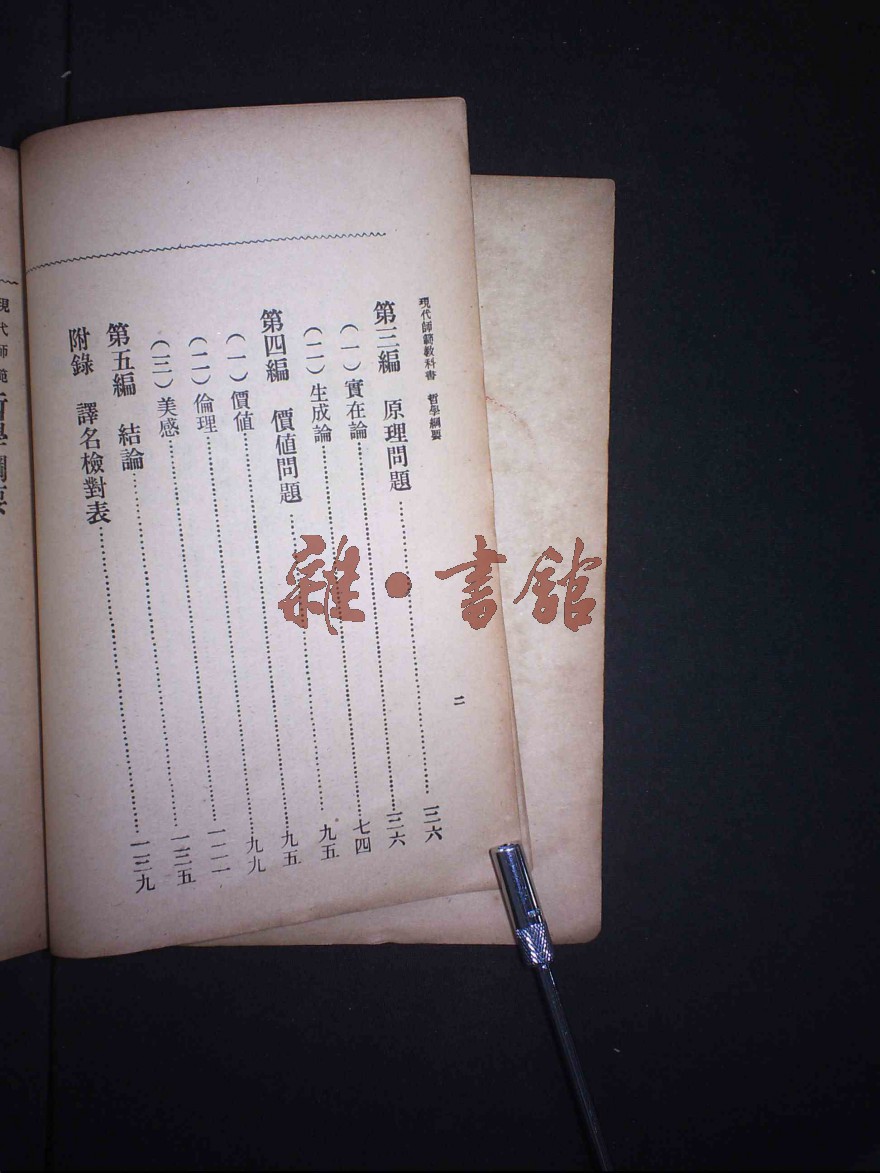 現代師範教科書 哲學綱要
二
第三編 原理問題……三六
（一）實在論……三六
（二）生成論……七四
第四編 價值問題……九五
（一）價值……九五
（二）倫理……九九
（三）美感……一二一
第五編 結論……一三五
附錄 譯名檢對表……一三九
現代師範
雜・書館